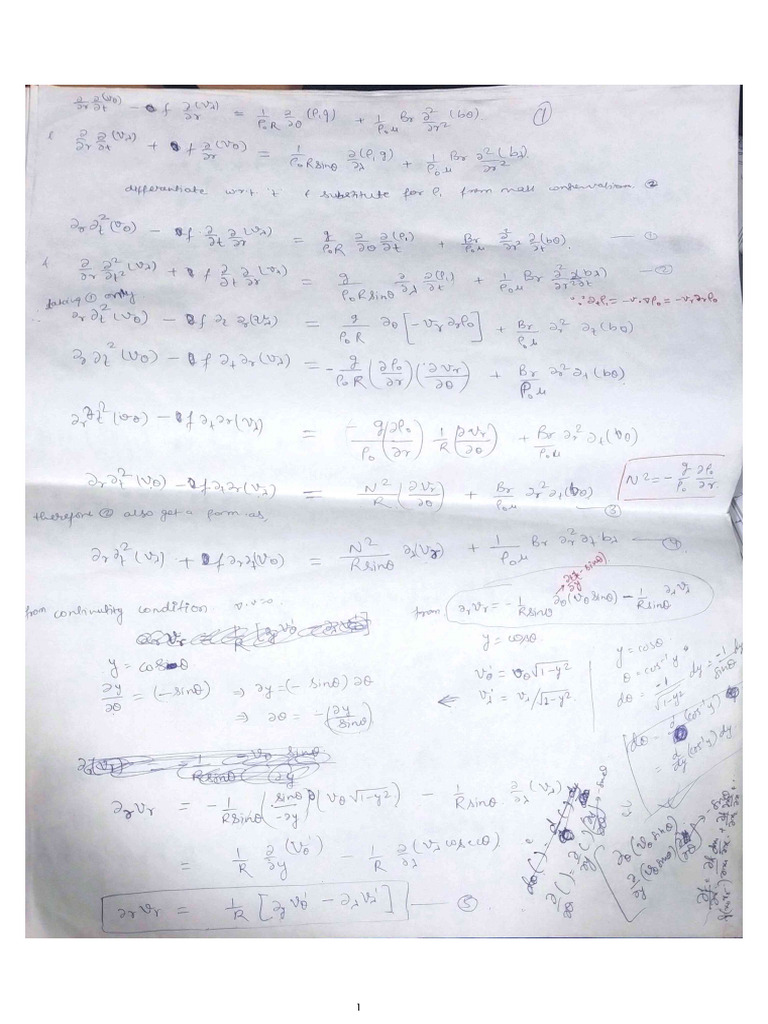 ∂/∂r ∂/∂t (vθ) − f ∂/∂r (vλ) = 1/ρ₀R ∂/∂θ (ρ₁g) + 1/ρ₀μ Br ∂²/∂r² (bθ) ①
& ∂/∂r ∂/∂t (vλ) + f ∂/∂r (vθ) = 1/ρ₀R sinθ ∂/∂λ (ρ₁g) + 1/ρ₀μ Br ∂²/∂r² (bλ)
differentiate w.r.t 't' & substitute for ρ₁ from mass conservation ②
∂r ∂t² (vθ) − f ∂/∂t ∂/∂r (vλ) = g/ρ₀R ∂/∂θ ∂/∂t (ρ₁) + Br/ρ₀μ ∂²/∂r² ∂/∂t (bθ). — ①
& ∂/∂r ∂²/∂t² (vλ) + f ∂/∂t ∂/∂r (vθ) = g/ρ₀R sinθ ∂/∂λ ∂(ρ₁)/∂t + 1/ρ₀μ Br ∂²/∂r² ∂/∂t (bλ) — ②
∵ ∂tρ₁ = −v·∇ρ₀ = −vr ∂rρ₀
taking ① only
∂r ∂t² (vθ) − f ∂t ∂r (vλ) = g/ρ₀R ∂θ [−vr ∂rρ₀] + Br/ρ₀μ ∂r² ∂t (bθ)
∂r ∂t² (vθ) − f ∂t ∂r (vλ) = − g/ρ₀R (∂ρ₀/∂r) (∂vr/∂θ) + Br/ρ₀μ ∂r² ∂t (bθ)
∂r ∂t² (vθ) − f ∂t ∂r (vλ) = − g/ρ₀ (∂ρ₀/∂r) 1/R (∂vr/∂θ) + Br/ρ₀μ ∂r² ∂t (bθ)
∂r ∂t² (vθ) − f ∂t ∂r (vλ) = N²/R (∂vr/∂θ) + Br/ρ₀μ ∂r² ∂t (bθ) — ③
N² = − g/ρ₀ ∂ρ₀/∂r
therefore ② also get a form as,
∂r ∂t² (vλ) + f ∂r ∂t (vθ) = N²/R sinθ ∂λ (vr) + 1/ρ₀μ Br ∂r² ∂t bλ — ④
from continuity condition ∇·v=0.
from ∂r vr = − 1/R sinθ ∂θ (vθ sinθ) − 1/R sinθ ∂λ vλ
y = cosθ
∂y/∂θ = (−sinθ) ⇒ ∂y = (− sinθ) ∂θ
⇒ ∂θ = −(∂y/sinθ)
y = cosθ
vθ' = vθ √1−y²
vλ' = vλ/√1−y²
y = cosθ
θ = cos⁻¹ y
dθ = −1/√1−y² dy = −1/sinθ dy
= d/dy (cos⁻¹y) dy
∂r vr = − 1/R sinθ (sinθ/−∂y) (vθ √1−y²) − 1/R sinθ ∂/∂λ (vλ)
= 1/R ∂/∂y (vθ') − 1/R ∂/∂λ (vλ cosecθ)
∂r vr = 1/R [∂y vθ' − ∂λ vλ'] — ⑤
1